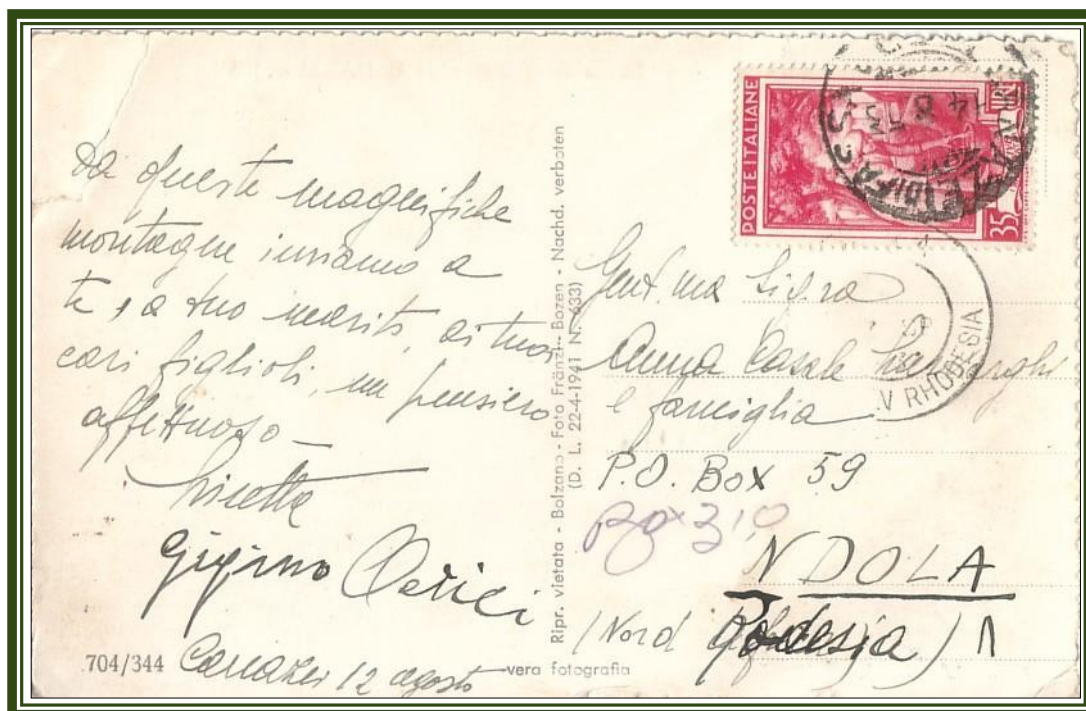 Da queste magnifiche
montagne inviamo a
te, a tuo marito, ai tuoi
cari figlioli, un pensiero
affettuoso
Gigino
Canazei 12 agosto
704/344
vera fotografia
Ripr. vietata - Bolzano - Foto Fränzl - Bozen - Nachd. verboten
(D. L. 22-4-1941 N. 633)
POSTE ITALIANE
35
14 8 53
RHODESIA
Gent.ma Sig.ra
Anna Casale
e famiglia
P.O. Box 59
Box 310
NDOLA
(Nord Rodesia)